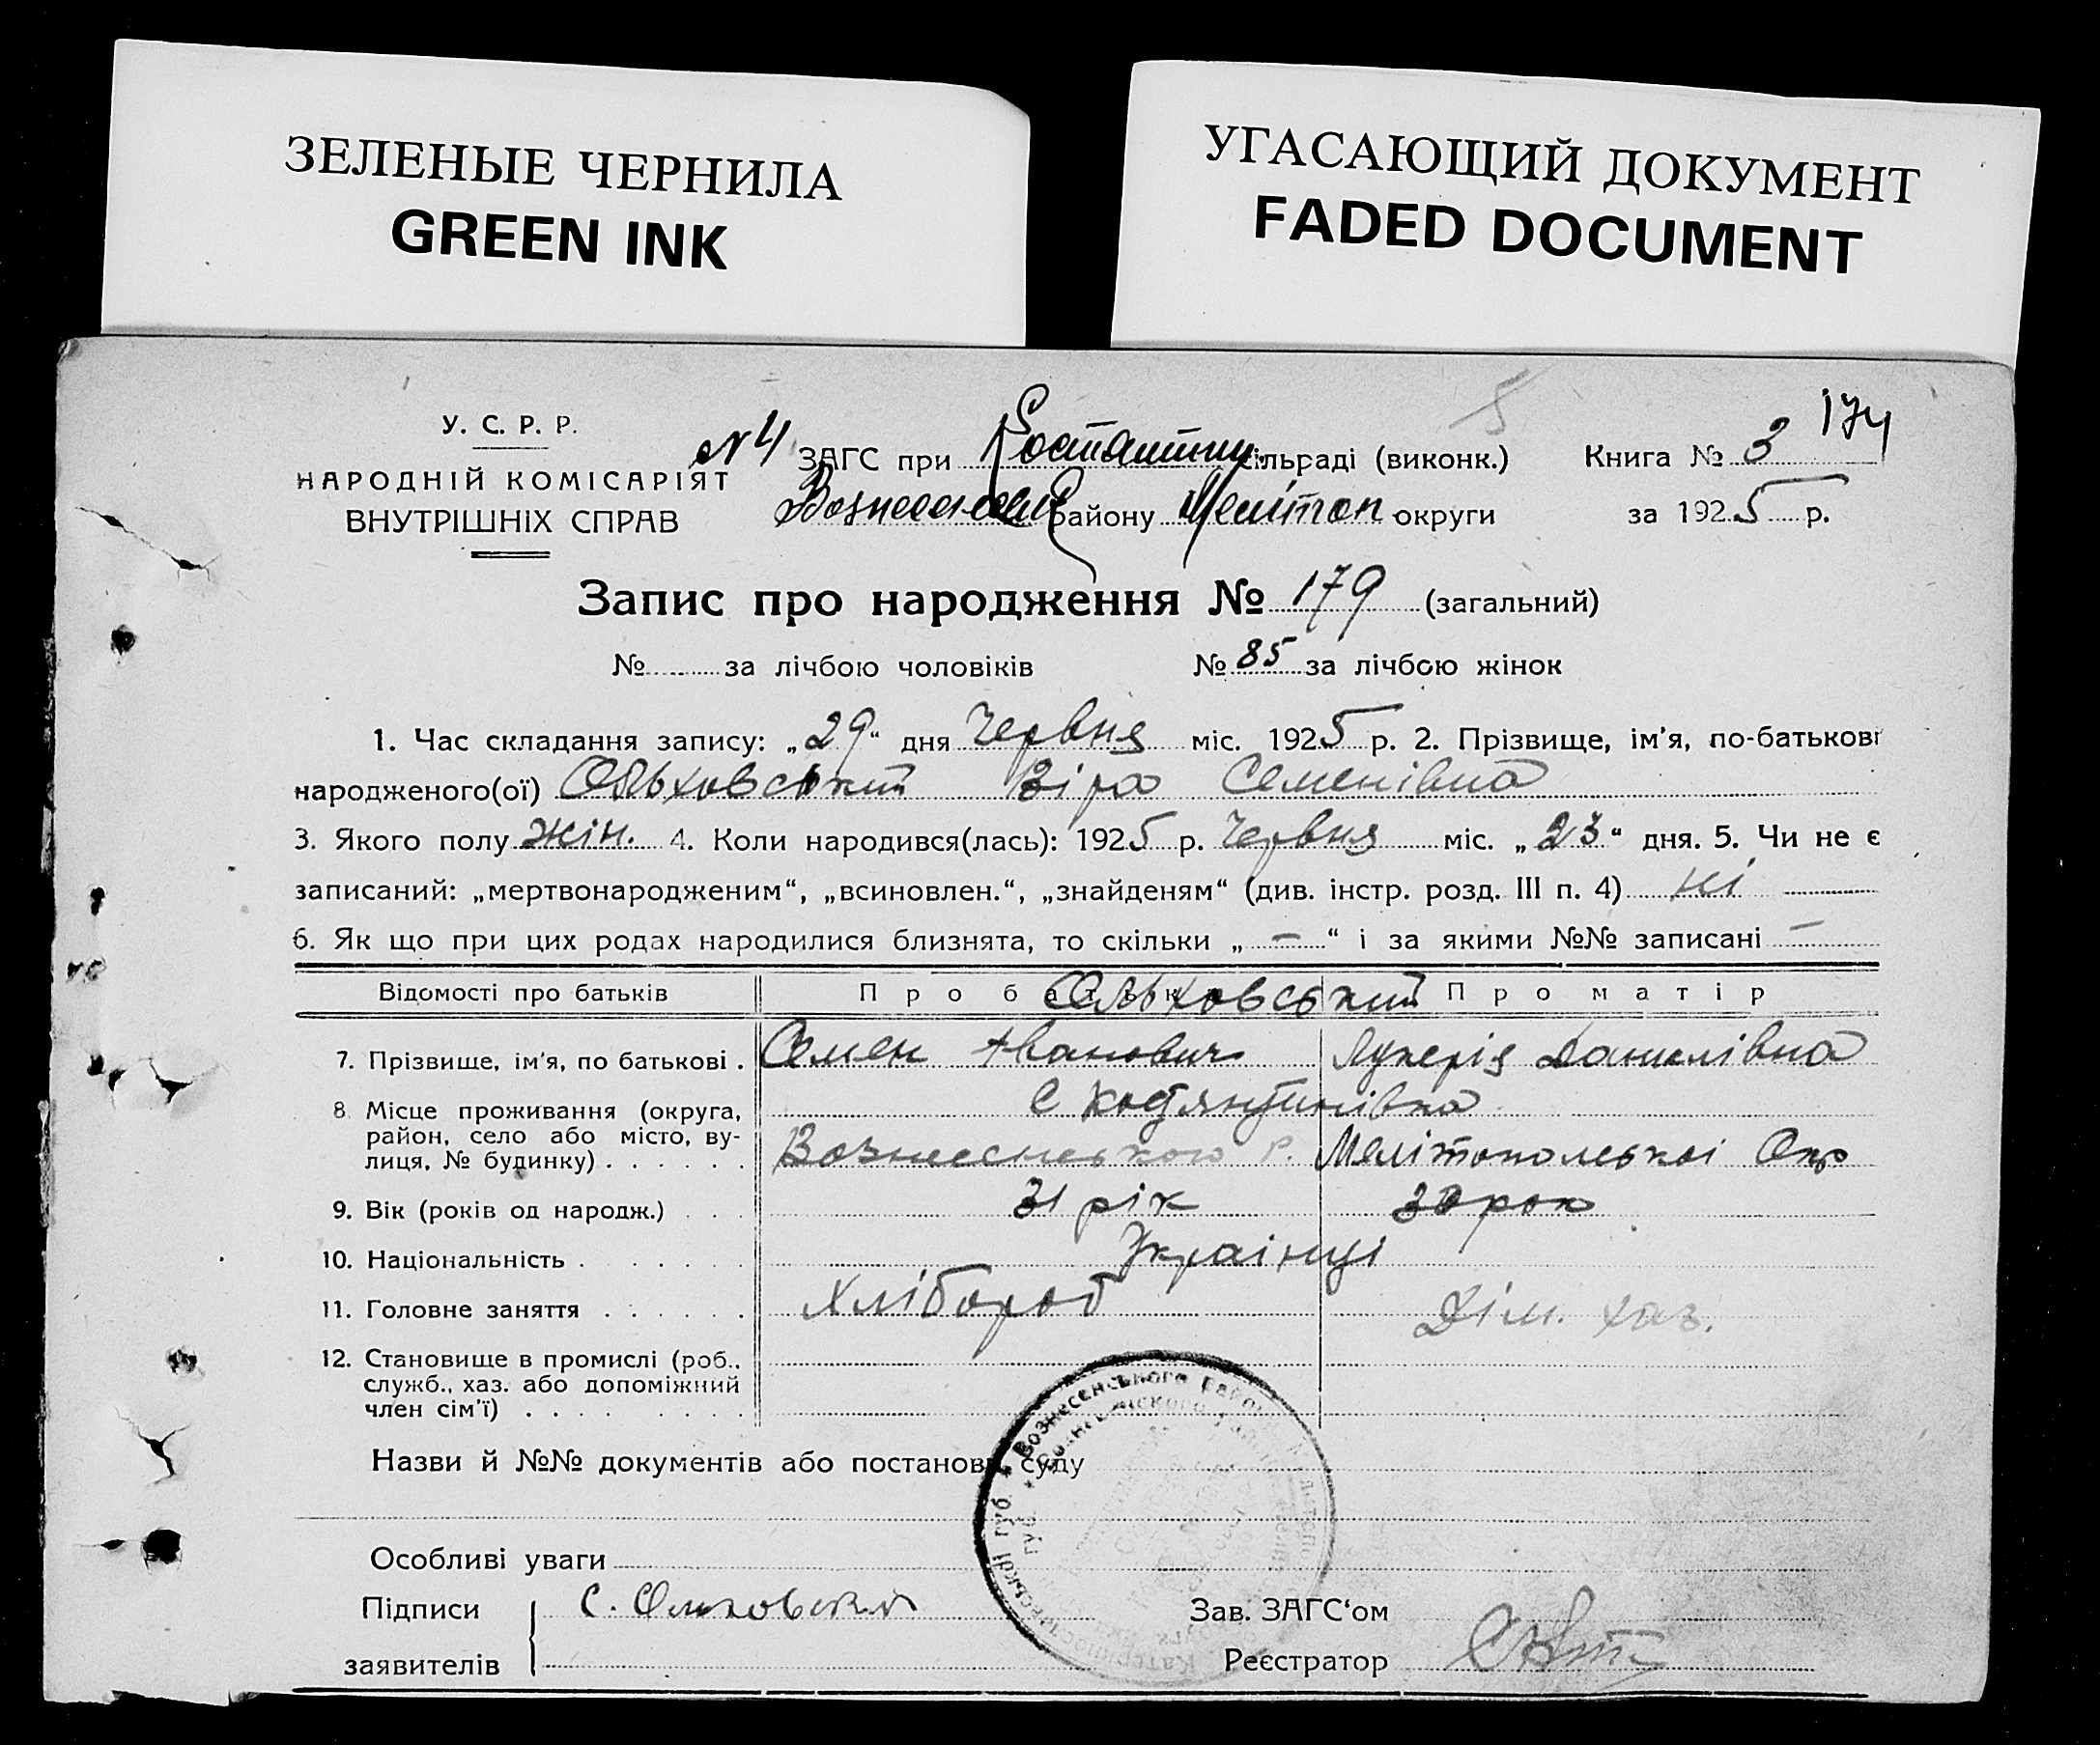 ЗЕЛЕНЫЕ ЧЕРНИЛА
GREEN INK
УГАСАЮЩИЙ ДОКУМЕНТ
FADED DOCUMENT
У. С. Р. Р.
НАРОДНІЙ КОМІСАРІЯТ
ВНУТРІШНІХ СПРАВ
N 4 ЗАГС при сільраді (виконк.)
району Мелітоп округи
5
174
Книга № 3
за 1925 р.
Запис про народження № 179 (загальний)
№ за лічбою чоловіків № 85 за лічбою жінок
1. Час складання запису: „29“ дня Червня міс. 1925 р. 2. Прізвище, ім'я, по-батькові
народженого(ої) Ольховський Віра Семенівна
3. Якого полу жін. 4. Коли народився(лась): 1925 р. Червня міс. „23“ дня. 5. Чи не є
записаний: „мертвонародженим“, „всиновлен.“, „знайденям“ (див. інстр. розд. III п. 4) ні
6. Як що при цих родах народилися близнята, то скільки „ — “ і за якими №№ записані —
Відомості про батьків Про батька Ольховський Про матір
7. Прізвище, ім'я, по батькові . Семен Іванович Лукерія Данилівна
8. Місце проживання (округа, район, село або місто, вулиця, № будинку) . . . . . . С Костянтинівка
Вознесенського Р. Мелітопольскоі Окр
9. Вік (років од народж.) . . . 31 рік 30 рок
10. Національність . . . . . . . Украінці
11. Головне заняття . . . . . . Хлібороб Дім. хаз.
12. Становище в промислі (роб., служб., хаз. або допоміжний член сім'ї) . . . . . . . . .
Назви й №№ документів або постанови суду
Вознесенського району
губ.
Особливі уваги
Підписи С. Ольховский Зав. ЗАГС'ом
заявителів Реєстратор